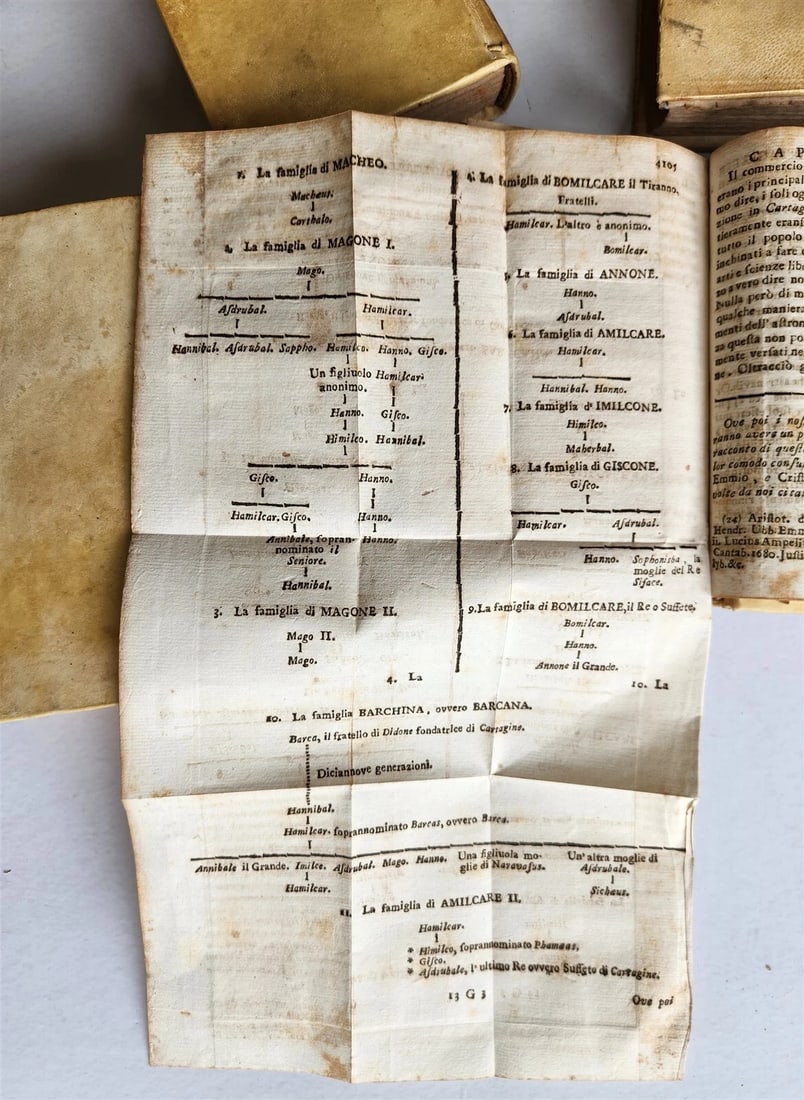 1. La famiglia di MACHEO.
Machæus.
Carthalo.
2. La famiglia di MAGONE I.
Mago.
Aſdrubal. Hamilcar.
Hannibal. Aſdrubal. Sappho. Hamilco. Hanno. Giſco.
Un figliuolo Hamilcar.
anonimo.
Hanno. Giſco.
Himilco. Hannibal.
Giſco. Hanno.
Hamilcar. Giſco. Hanno.
Annibale, ſopran- Hanno.
nominato il
Seniore.
Hannibal.
3. La famiglia di MAGONE II.
Mago II.
Mago.
4. La
4105
4. La famiglia di BOMILCARE il Tiranno.
Fratelli.
Hamilcar. L'altro è anonimo.
Bomilcar.
5. La famiglia di ANNONE.
Hanno.
Aſdrubal.
6. La famiglia di AMILCARE.
Hamilcar.
Hannibal. Hanno.
7. La famiglia d' IMILCONE.
Himilco.
Maherbal.
8. La famiglia di GISCONE.
Giſco.
Hamilcar. Aſdrubal.
Hanno. Sophonisba, la
moglie del Re
Siface.
9. La famiglia di BOMILCARE, il Re o Suffete.
Bomilcar.
Hanno.
Annone il Grande.
10. La
10. La famiglia BARCHINA, ovvero BARCANA.
Barca, il fratello di Didone fondatrice di Cartagine.
Diciannove generazioni.
Hannibal.
Hamilcar. ſoprannominato Barcas, ovvero Barca.
Annibale il Grande. Imilce. Aſdrubal. Mago. Hanno. Una figliuola mo- Un'altra moglie di
glie di Naravaſus. Aſdrubale.
Hamilcar. Sichæus.
11. La famiglia di AMILCARE II.
Hamilcar.
* Himilco, ſoprannominato Phamæas.
* Giſco.
* Aſdrubale, l'ultimo Re ovvero Suffete di Cartagine.
13 G 3
Ove poi
C A P
Il commercio
erano i principal
mo dire, i ſoli og
zione in Cartag
tieramente eranſ
tutto il popolo
inchinati a fare
arti e ſcienze libe
to a vero dire no
Nulla però di m
qualche manier
menti dell' aſtron
za queſta non po
mente verſati ne
ne. Oltracciò g
Ove poi i noſ
ranno avere un p
racconto di queſt
lor comodo conſu
Emmio, e Criſt
volte da noi citat
(24) Ariſtot. d
Hendr. Ubb. Emm
ii. Lucius Ampeli
Cantab. 1680. Juſti
lyb. &c.